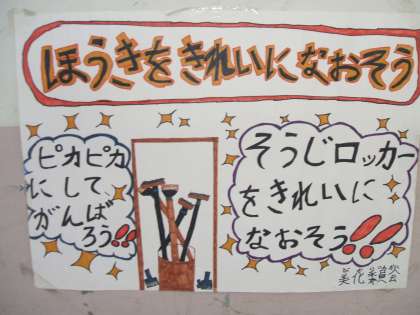 ほうきをきれいになおそう
ピカピカ
にして、
がんば
ろう!!
そうじロッカー
をきれいに
なおそう!!
美化委員会